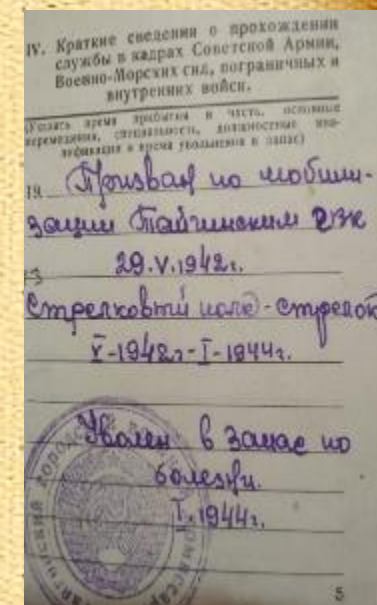 IV. Краткие сведения о прохождении
службы в кадрах Советской Армии,
Военно-Морских сил, пограничных и
внутренних войск.
(Указать время прибытия в часть, основные
перемещения, специальность, должностные
и время увольнения в запас)
19 Призван по мобили-
зации Тайгинским РВК
29.V.1942г.
Стрелковый полк - стрелок
V-1942г - I-1944г.
Уволен в запас по
болезни.
I.1944г.
5